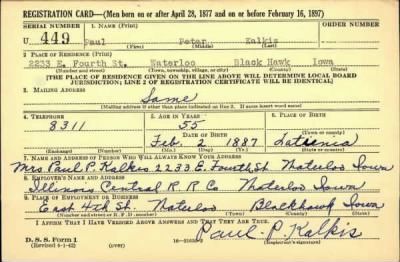 REGISTRATION CARD—(Men born on or after April 28, 1877 and on or before February 16, 1897)
SERIAL NUMBER 1. NAME (Print) ORDER NUMBER
U 449 Paul Peter Kalkis
(First) (Middle) (Last)
2. PLACE OF RESIDENCE (Print)
2233 E. Fourth St. Waterloo Black Hawk Iowa
(Number and street) (Town, township, village, or city) (County) (State)
[THE PLACE OF RESIDENCE GIVEN ON THE LINE ABOVE WILL DETERMINE LOCAL BOARD
JURISDICTION; LINE 2 OF REGISTRATION CERTIFICATE WILL BE IDENTICAL]
3. MAILING ADDRESS
Same
[Mailing address if other than place indicated on line 2. If same insert word same]
4. TELEPHONE 5. AGE IN YEARS 6. PLACE OF BIRTH
8311 55
DATE OF BIRTH (Town or county)
Feb 2 1887 Latvia
(Exchange) (Number) (Mo.) (Day) (Yr.) (State or country)
7. NAME AND ADDRESS OF PERSON WHO WILL ALWAYS KNOW YOUR ADDRESS
Mrs Paul P. Kalkis 2233 E. Fourth St Waterloo Iowa
8. EMPLOYER'S NAME AND ADDRESS
Illinois Central R R Co. Waterloo Iowa
9. PLACE OF EMPLOYMENT OR BUSINESS
East 4th St. Waterloo Blackhawk Iowa
(Number and street or R. F. D. number) (Town) (County) (State)
I AFFIRM THAT I HAVE VERIFIED ABOVE ANSWERS AND THAT THEY ARE TRUE.
Paul. P. Kalkis
D. S. S. Form 1
(Revised 4-1-42) (over) (Registrant's signature)